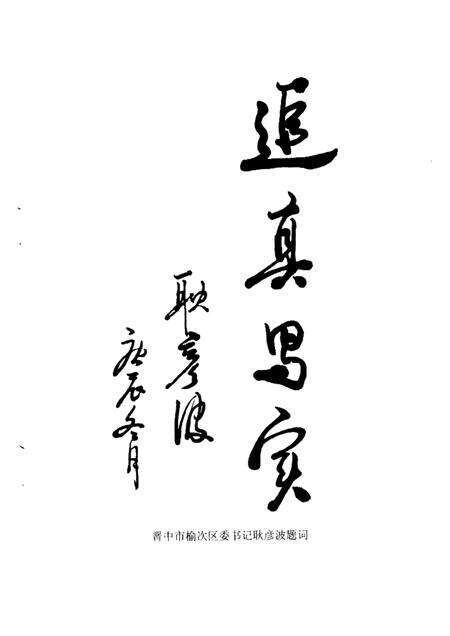 追真写实
耿彦波
庚辰冬月
晋中市榆次区委书记耿彦波题词